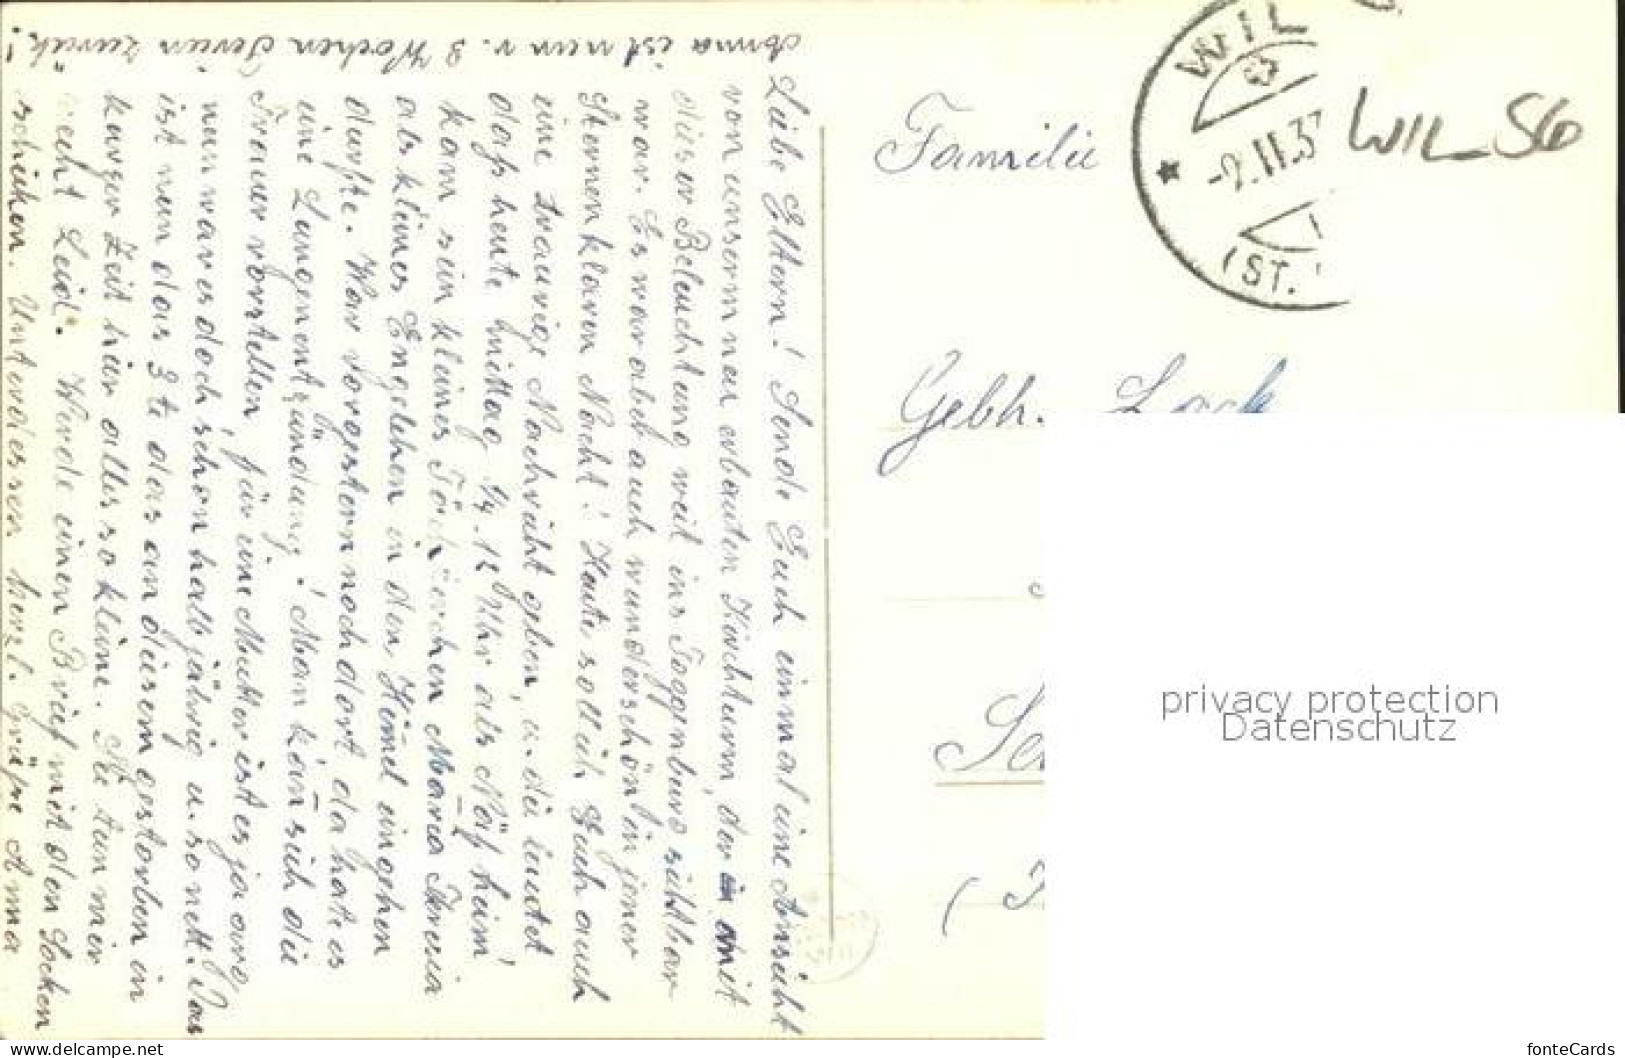 Anna ist nun v. 3 Wochen Ferien zurück!
Liebe Eltern! Sende Euch einmal eine Ansicht
von unserm neu erbauten Kirchturm, der mit
dieser Beleuchtung weit ins Toggenburg sichtbar
war. Es war aber auch wunderschön in jener
sternenklaren Nacht! Heute soll ich Euch auch
eine traurige Nachricht geben, u. die lautet
dass heute mittag 1/4.12 Uhr als Näß heim
kam sein kleines Töchterchen Maria Theresia
als kleines Engelchen in den Himel eingehen
durfte. War vorgestern noch dort da hate es
eine Lungenentzündung! Man kan sich die
Trauer vorstellen, für eine Mutter ist es ja arg
nun war es doch schon halb jährig u. so nett. Das
ist nun das 3te das an diesem gestorben in
kurzer Zeit hier alles so kleine. Sie tun mir
recht Leid. Werde einen Brief mit den Socken
schicken. Unterdessen herzl. Grüsse Anna
Familie
Gebh.
WIL
-9.II.37
(ST.
WIL 56
privacy protection
Datenschutz
delcampe.net
fonteCards